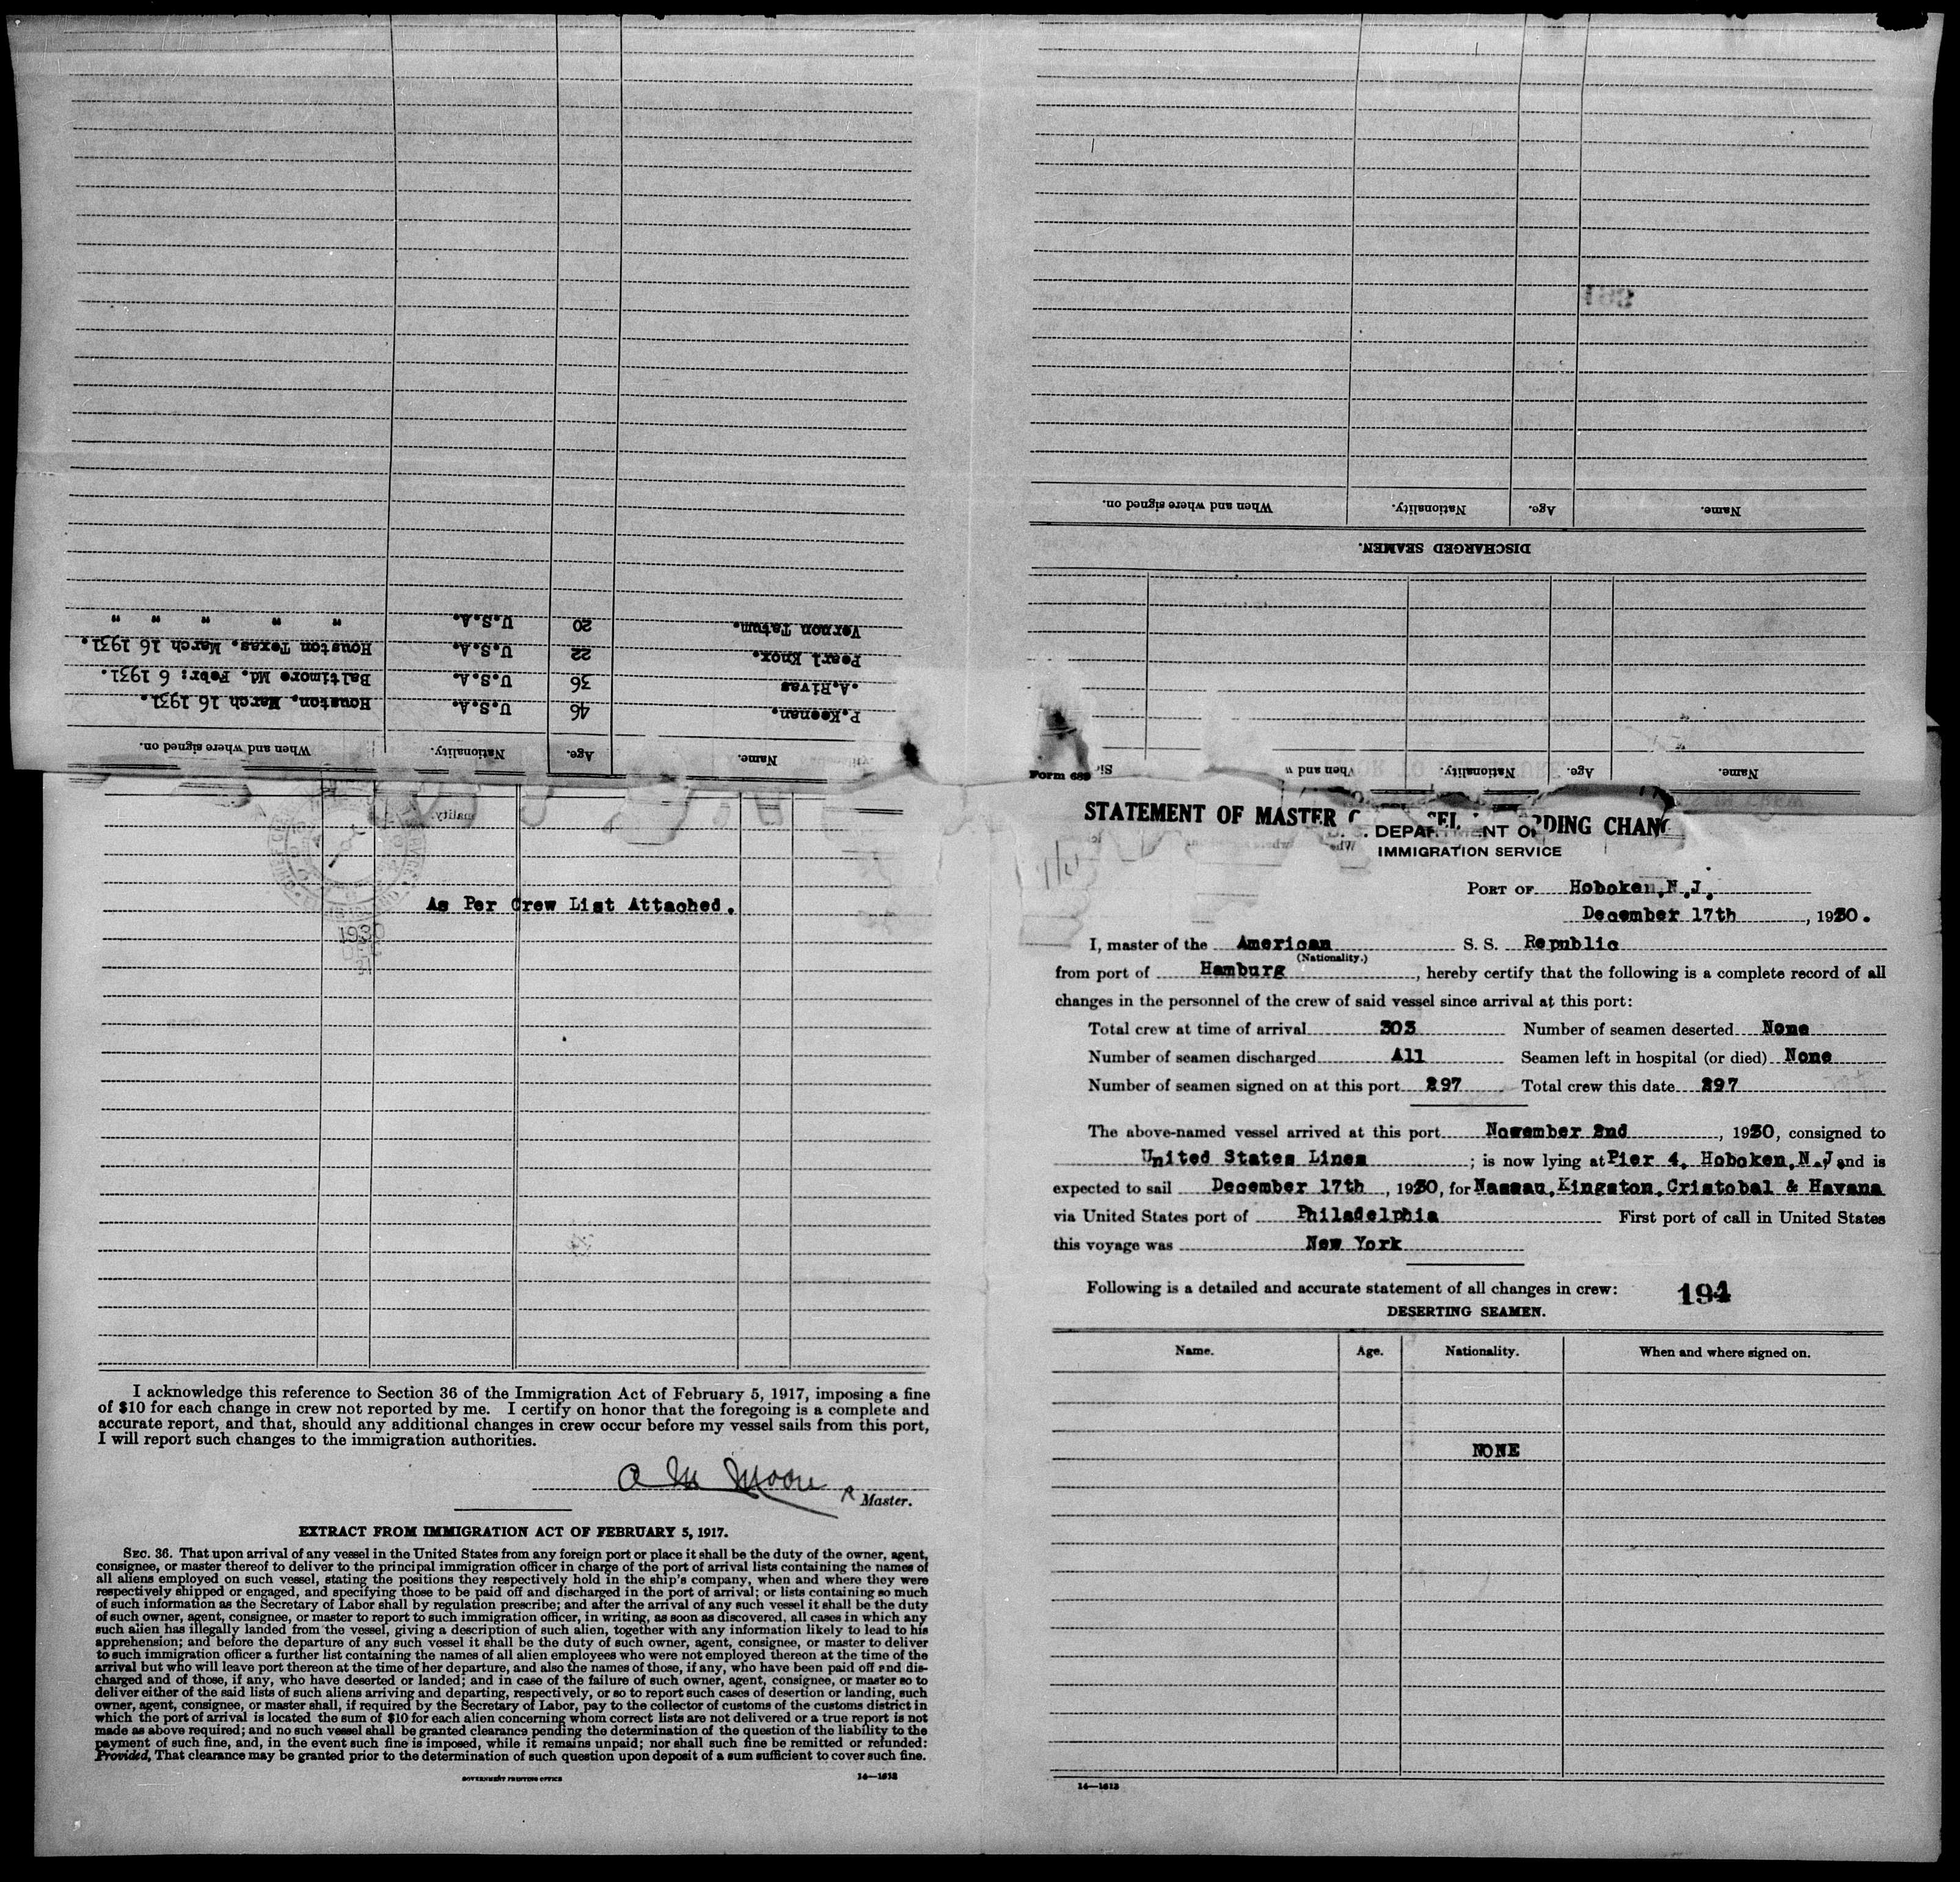 Name. Age. Nationality. When and where signed on.
P.Keenan. 46 U.S.A. Houston, March 16 1931.
.A.Rivas 36 U.S.A. Baltimore Md. Febr: 6 1931.
Pearl Knox. 22 U.S.A. Houston Texas. March 16 1931.
Vernon Tatum. 20 U.S.A. " " " " "
Name. Age. Nationality.
DISCHARGED SEAMEN.
Name. Age. Nationality. When and where signed on.
As Per Crew List Attached.
1930
I acknowledge this reference to Section 36 of the Immigration Act of February 5, 1917, imposing a fine
of $10 for each change in crew not reported by me. I certify on honor that the foregoing is a complete and
accurate report, and that, should any additional changes in crew occur before my vessel sails from this port,
I will report such changes to the immigration authorities.
A M Moore
Master.
EXTRACT FROM IMMIGRATION ACT OF FEBRUARY 5, 1917.
SEC. 36. That upon arrival of any vessel in the United States from any foreign port or place it shall be the duty of the owner, agent,
consignee, or master thereof to deliver to the principal immigration officer in charge of the port of arrival lists containing the names of
all aliens employed on such vessel, stating the positions they respectively hold in the ship's company, when and where they were
respectively shipped or engaged, and specifying those to be paid off and discharged in the port of arrival; or lists containing so much
of such information as the Secretary of Labor shall by regulation prescribe; and after the arrival of any such vessel it shall be the duty
of such owner, agent, consignee, or master to report to such immigration officer, in writing, as soon as discovered, all cases in which any
such alien has illegally landed from the vessel, giving a description of such alien, together with any information likely to lead to his
apprehension; and before the departure of any such vessel it shall be the duty of such owner, agent, consignee, or master to deliver
to such immigration officer a further list containing the names of all alien employees who were not employed thereon at the time of the
arrival but who will leave port thereon at the time of her departure, and also the names of those, if any, who have been paid off and dis-
charged and of those, if any, who have deserted or landed; and in case of the failure of such owner, agent, consignee, or master so to
deliver either of the said lists of such aliens arriving and departing, respectively, or so to report such cases of desertion or landing, such
owner, agent, consignee, or master shall, if required by the Secretary of Labor, pay to the collector of customs of the customs district in
which the port of arrival is located the sum of $10 for each alien concerning whom correct lists are not delivered or a true report is not
made as above required; and no such vessel shall be granted clearance pending the determination of the question of the liability to the
payment of such fine, and, in the event such fine is imposed, while it remains unpaid; nor shall such fine be remitted or refunded:
Provided, That clearance may be granted prior to the determination of such question upon deposit of a sum sufficient to cover such fine.
GOVERNMENT PRINTING OFFICE 14—1613
Form 689
STATEMENT OF MASTER
IMMIGRATION SERVICE
PORT OF Hoboken, N.J.
December 17th, 1930.
I, master of the American S. S. Republic
(Nationality.)
from port of Hamburg, hereby certify that the following is a complete record of all
changes in the personnel of the crew of said vessel since arrival at this port:
Total crew at time of arrival 303 Number of seamen deserted None
Number of seamen discharged All Seamen left in hospital (or died) None
Number of seamen signed on at this port 297 Total crew this date 297
The above-named vessel arrived at this port November 2nd, 1930, consigned to
United States Lines; is now lying at Pier 4, Hoboken, N.J, and is
expected to sail December 17th, 1930, for Nassau, Kingston, Cristobal & Havana
via United States port of Philadelphia First port of call in United States
this voyage was New York
Following is a detailed and accurate statement of all changes in crew: 194
DESERTING SEAMEN.
Name. Age. Nationality. When and where signed on.
NONE
14—1613